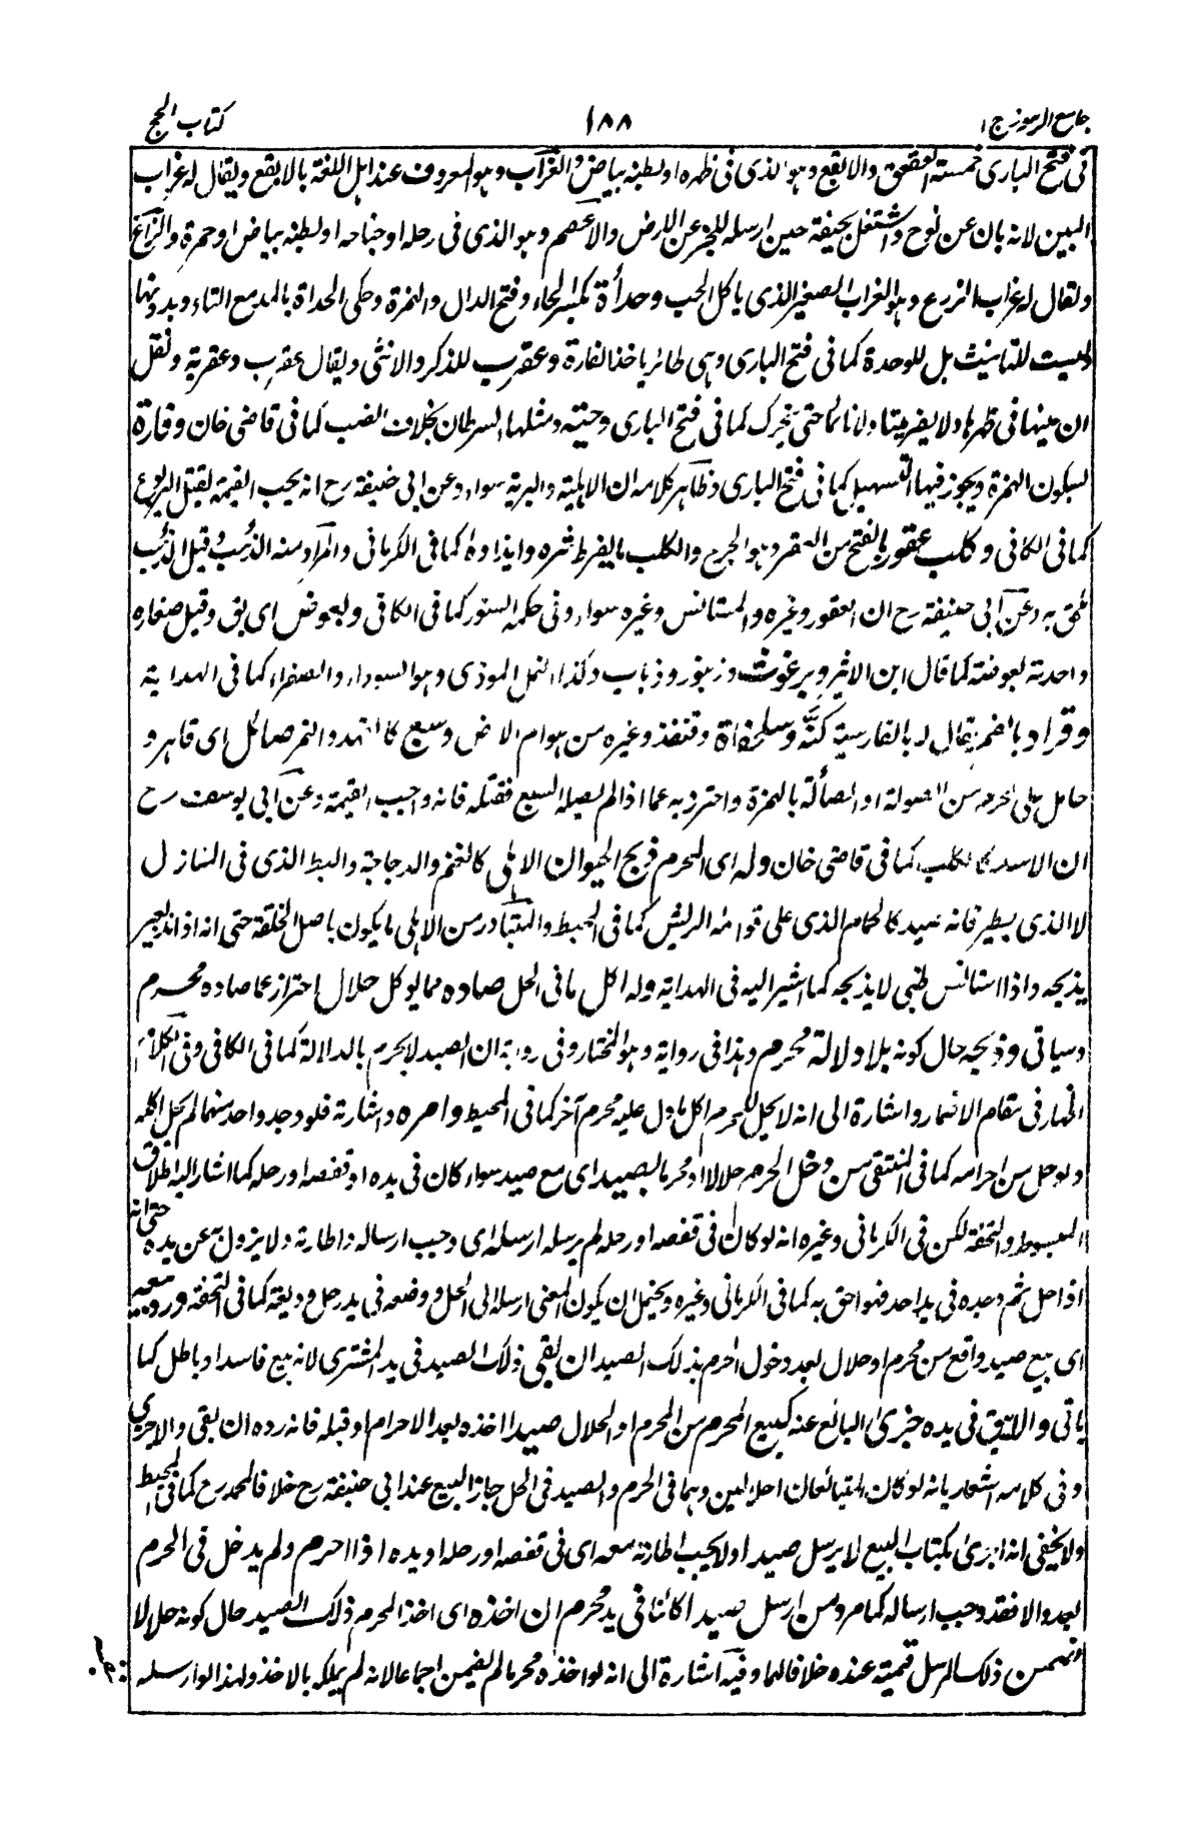 جامع الرموز ج ا
١٨٨
كتاب الحج
فى فتح البارى خمسة العقعق والابقع وهو الذى فى ظهره او بطنه بياض والغراب وهو المعروف عند اهل اللغة بالابقع ويقال له غراب
البين لانه بان عن نوح واشتغل بجيفة حين ارسله للخبر عن الارض والاعصم وهو الذى فى رجله او جناحه او بطنه بياض او حمرة والزاغ
ويقال له غراب الزرع وهو الغراب الصغير الذى ياكل الحب وحدأة بكسر الحاء وفتح الدال والهمزة وحكى الحداة بالمد مع التاء وبدونها
وليست للتانيث بل للوحدة كما فى فتح البارى وهى طائر ياخذ الفارة وعقرب للذكر والانثى ويقال عقرب وعقربة ونقل
ان عينها فى ظهرها ولا يضر ميتا ولا نائما حتى يتحرك كما فى فتح البارى وحية ومثلها السرطان بخلاف الضب كما فى قاضى خان وفارة
بسكون الهمزة ويجوز فيها التسهيل كما فى فتح البارى وظاهر كلامه ان الاهلية والبرية سواء وعن ابى حنيفة رح انه يجب القيمة بقتل اليربوع
كما فى الكافى وكلب عقور بالفتح من العقر وهو الجرح والكلب ما يفرط شره وايذاؤه كما فى الكرمانى والمراد منه الذئب وقيل الذئب
ملحق به وعن ابى حنيفة رح ان العقور وغيره والمستانس وغيره سواء وفى حكمه السنور كما فى الكافى وبعوض اى بق وقيل صغاره
واحدته بعوضة كما قال ابن الاثير وبرغوث وزنبور وذباب وكذا النمل الموذى وهو السوداء والصفراء كما فى الهداية
وقراد بالضم يقال له بالفارسية كنّه وسلحفاة وقنفذ وغيره من هوام الارض وسبع كالفهد والنمر صائل اى قاهر و
حامل على المحرم من الصولة او الصألة بالهمزة واحترز به عما اذا لم يصله السبع فقتله فانه واجب القيمة وعن ابى يوسف رح
ان الاسد كالكلب كما فى قاضى خان وله اى المحرم ذبح الحيوان الاهلى كالغنم والدجاجة والبط الذى فى المنازل
لا الذى يطير فانه صيد كالحمام الذى على قوائمه الريش كما فى المحيط والمتبادر من الاهلى ما يكون باصل الخلقة حتى انه اذا ند بعير
يذبحه واذا استانس ظبى لا يذبحه كما اشير اليه فى الهداية وله اكل ما فى الحل صاده مما يوكل حلال احتراز عما صاده محرم
وسياتى وذبحه حال كونه بلا دلالة محرم وهذا فى رواية وهو المختار وفى رواية ان الصيد لا يحرم بالدلالة كما فى الكافى وفى الكلام
اظهار فى مقام الاضمار واشارة الى انه لا يحل للمحرم اكل ما دل عليه محرم آخر كما فى المحيط وامره واشارته فلو وجد واحد منهما لم يحل اكله
ولو حل من احرامه كما فى المنتقى من دخل الحرم حلالا او محرما بصيد اى مع صيد سواء كان فى يده او قفصه او رحله كما اشار اليه اطلاق
المبسوط والتحفة لكن فى الكرمانى وغيره انه لو كان فى قفصه او رحله لم يرسله ارسله اى وجب ارساله واطارته ولا يزول عن يده حتى انه
اذا حل ثم وجده فى يد احد فهو احق به كما فى الكرمانى وغيره ويحتمل ان يكون المعنى ارسله الى الحل ووضعه فى يد رجل وديعة كما فى التحفة ورد بيعه
اى بيع صيد واقع من محرم او حلال بعد دخول الحرم بذلك الصيد ان بقى ذلك الصيد فى يد المشترى لانه بيع فاسد او باطل كما
ياتى والا يبق فى يده جزى البائع عنه كبيع المحرم من المحرم او الحلال صيدا اخذه بعد الاحرام او قبله فانه رده ان بقى والا جزى
وفى كلامه اشعار بانه لو كان المتبائعان حلالين وهما فى الحرم والصيد فى الحل جاز البيع عند ابى حنيفة رح خلافا لمحمد رح كما فى المحيط
ولا يخفى انه احرى بكتاب البيع لا يرسل صيدا ولا يجب اطارته معه اى فى قفصه او رحله او يده اذا احرم ولم يدخل فى الحرم
بعد والا فقد وجب ارساله كما مر ومن ارسل صيدا كائنا فى يد محرم ان اخذه اى اخذ المحرم ذلك الصيد حال كونه حلالا
ضمن ذلك المرسل قيمته عنده خلافا لهما وفيه اشارة الى انه لو اخذه محرما لم يضمن اجماعا لانه لم يملكه بالاخذ ولهذا لو ارسله